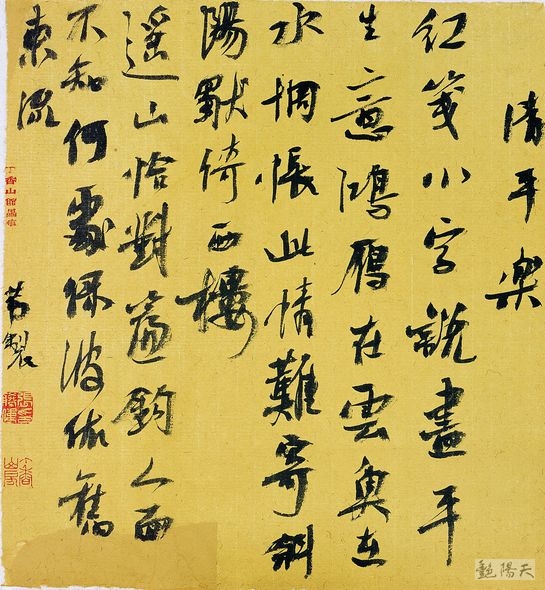 清平樂
紅箋小字說盡平
生意鴻鴈在雲魚在
水惆悵此情難寄斜
陽獨倚西樓
遙山恰對簾鉤人面
不知何處綠波依舊
東流
製
艷陽天